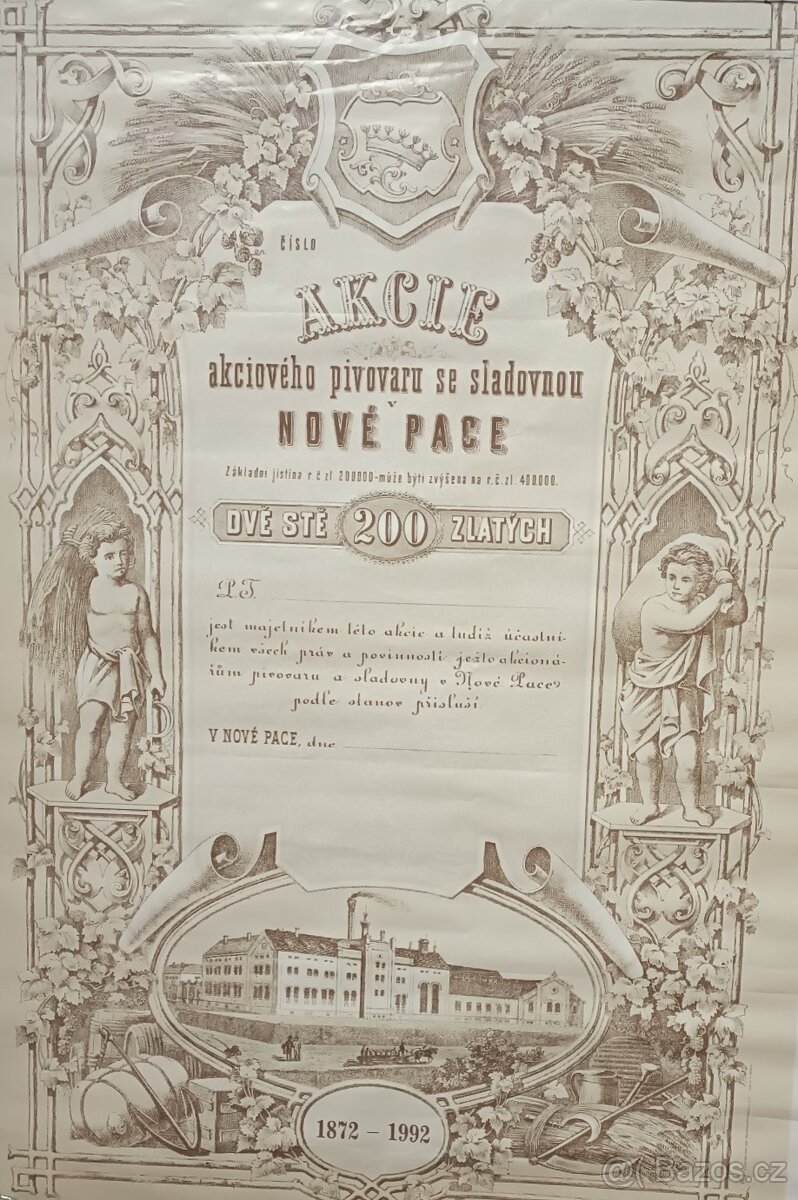 ČÍSLO
AKCIE
akciového pivovaru se sladovnou
v
NOVÉ PACE
Základní jistina r.č zl 200000-může býti zvýšena na r.č. zl. 400.000.
DVĚ STĚ 200 ZLATÝCH
P.T.
jest majetníkem této akcie a tudíž účastní-
kem všech práv a povinností ježto akcioná-
řům pivovaru a sladovny v Nové Pace
podle stanov přísluší.
V NOVÉ PACE, dne
1872 – 1992
Bazos.cz